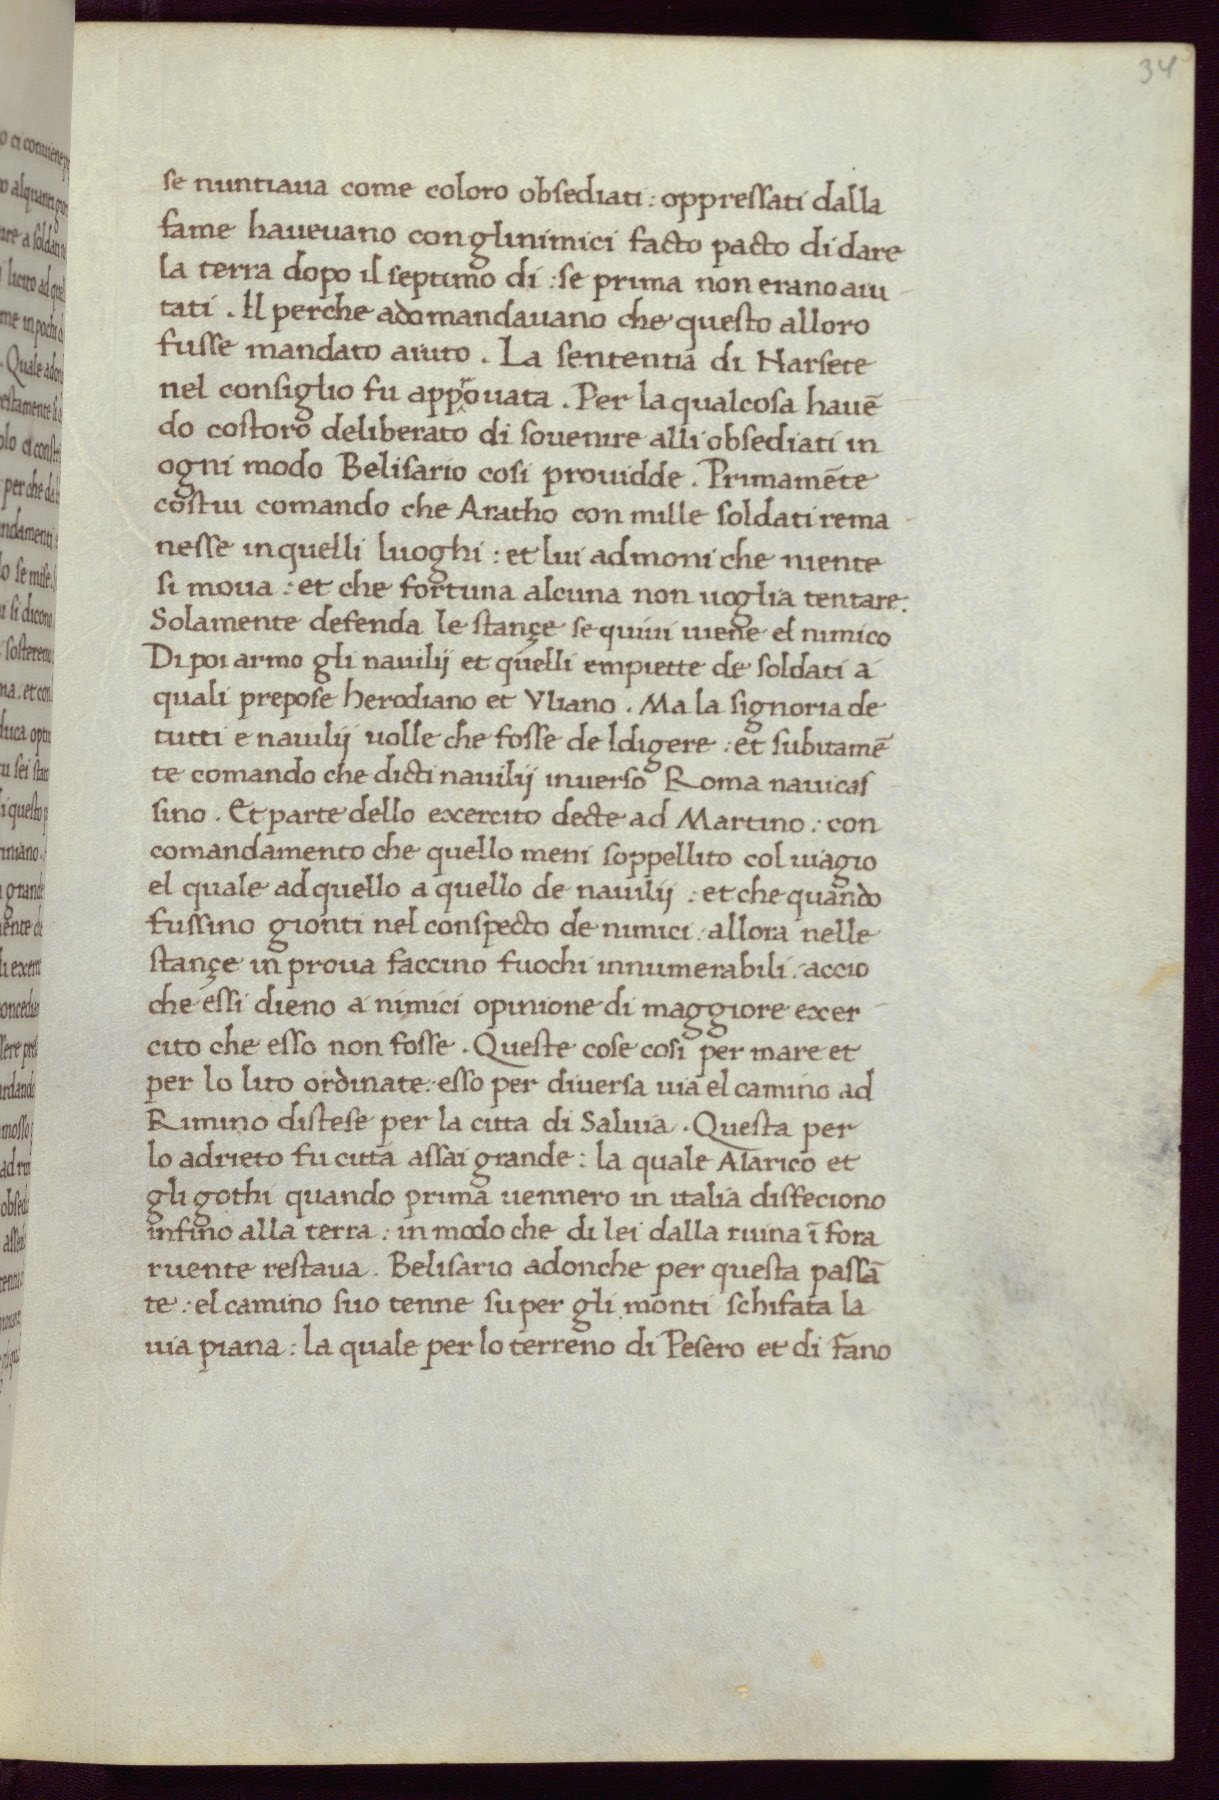 34
se nuntiaua come coloro obsediati : oppressati dalla
fame haueuano con glinimici facto pacto di dare
la terra dopo il septimo di : se prima non erano aiu
tati . Il perche adomandauano che questo alloro
fusse mandato aiuto . La sententia di Narsete
nel consiglio fu approuata . Per laqualcosa hauē
do costoro deliberato di souenire alli obsediati in
ogni modo Belisario cosi prouidde . Primamēte
costui comando che Aratho con mille soldati rema
nesse in quelli luoghi : et lui admoni che niente
si moua : et che fortuna alcuna non uoglia tentare :
Solamente defenda le stançe se quiui uiene el nimico
Di poi armo gli nauilij et quelli empiette de soldati a
quali prepose herodiano et Vliano . Ma la signoria de
tutti e nauilij uolle che fosse de Ildigere : et subitamē
te comando che dicti nauilij inuerso Roma nauicas
sino . Et parte dello excercito decte ad Martino : con
comandamento che quello meni soppellito col uiagio
el quale ad quello a quello de nauilij : et che quando
fussino gionti nel conspecto de nimici : allora nelle
stançe in proua faccino fuochi innumerabili : accio
che essi dieno a nimici opinione di maggiore exer
cito che esso non fosse . Queste cose cosi per mare et
per lo lito ordinate : esso per diuersa uia el camino ad
Rimino distese per la citta di Saluia . Questa per
lo adrieto fu citta assai grande : la quale Alarico et
gli gothi quando prima uennero in italia disfeciono
infino alla terra : in modo che di lei dalla ruina ī fora
ruente restaua . Belisario adonche per questa passā
te : el camino suo tenne su per gli monti schifata la
uia piana : la quale per lo terreno di Pesero et di fano